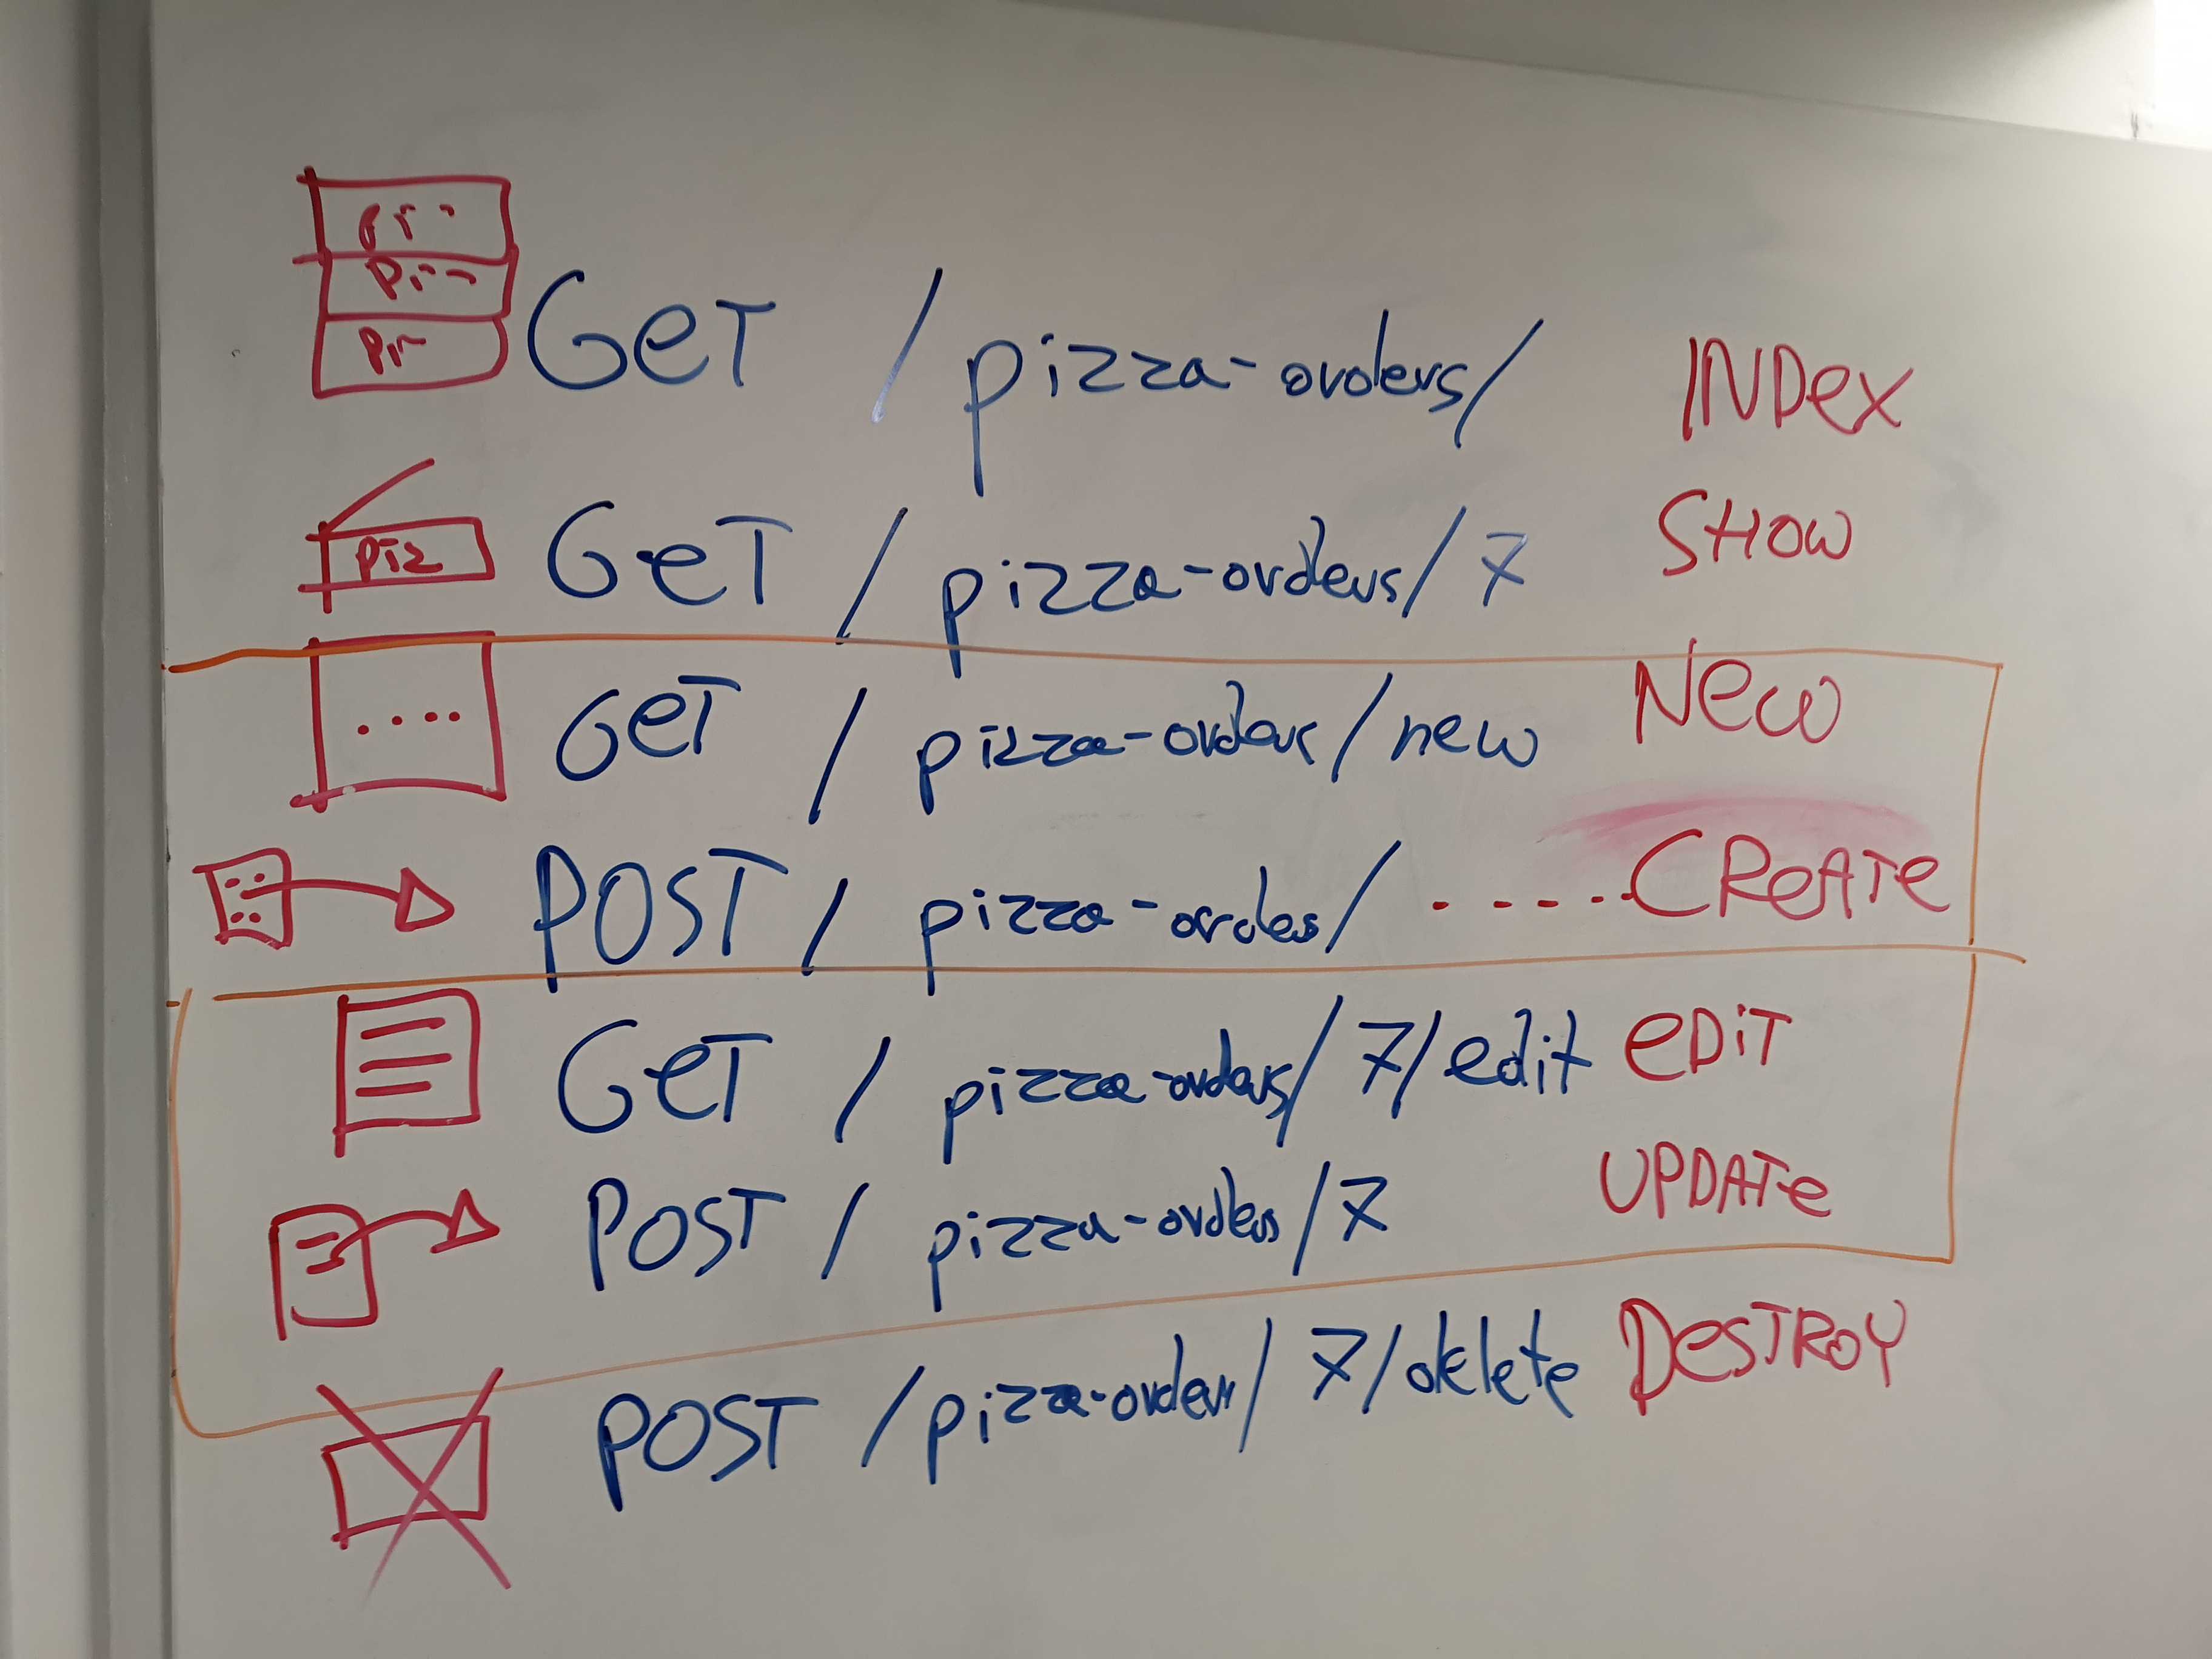 Pi
Pi
GET / pizza-orders/ INDEX
Pi
piz GET / pizza-orders/7 SHOW
GET / pizza-orders/new NEW
POST / pizza-orders/ ..... CREATE
GET / pizza-orders/7/edit EDIT
POST / pizza-orders/7 UPDATE
POST /pizza-orders/7/delete DESTROY